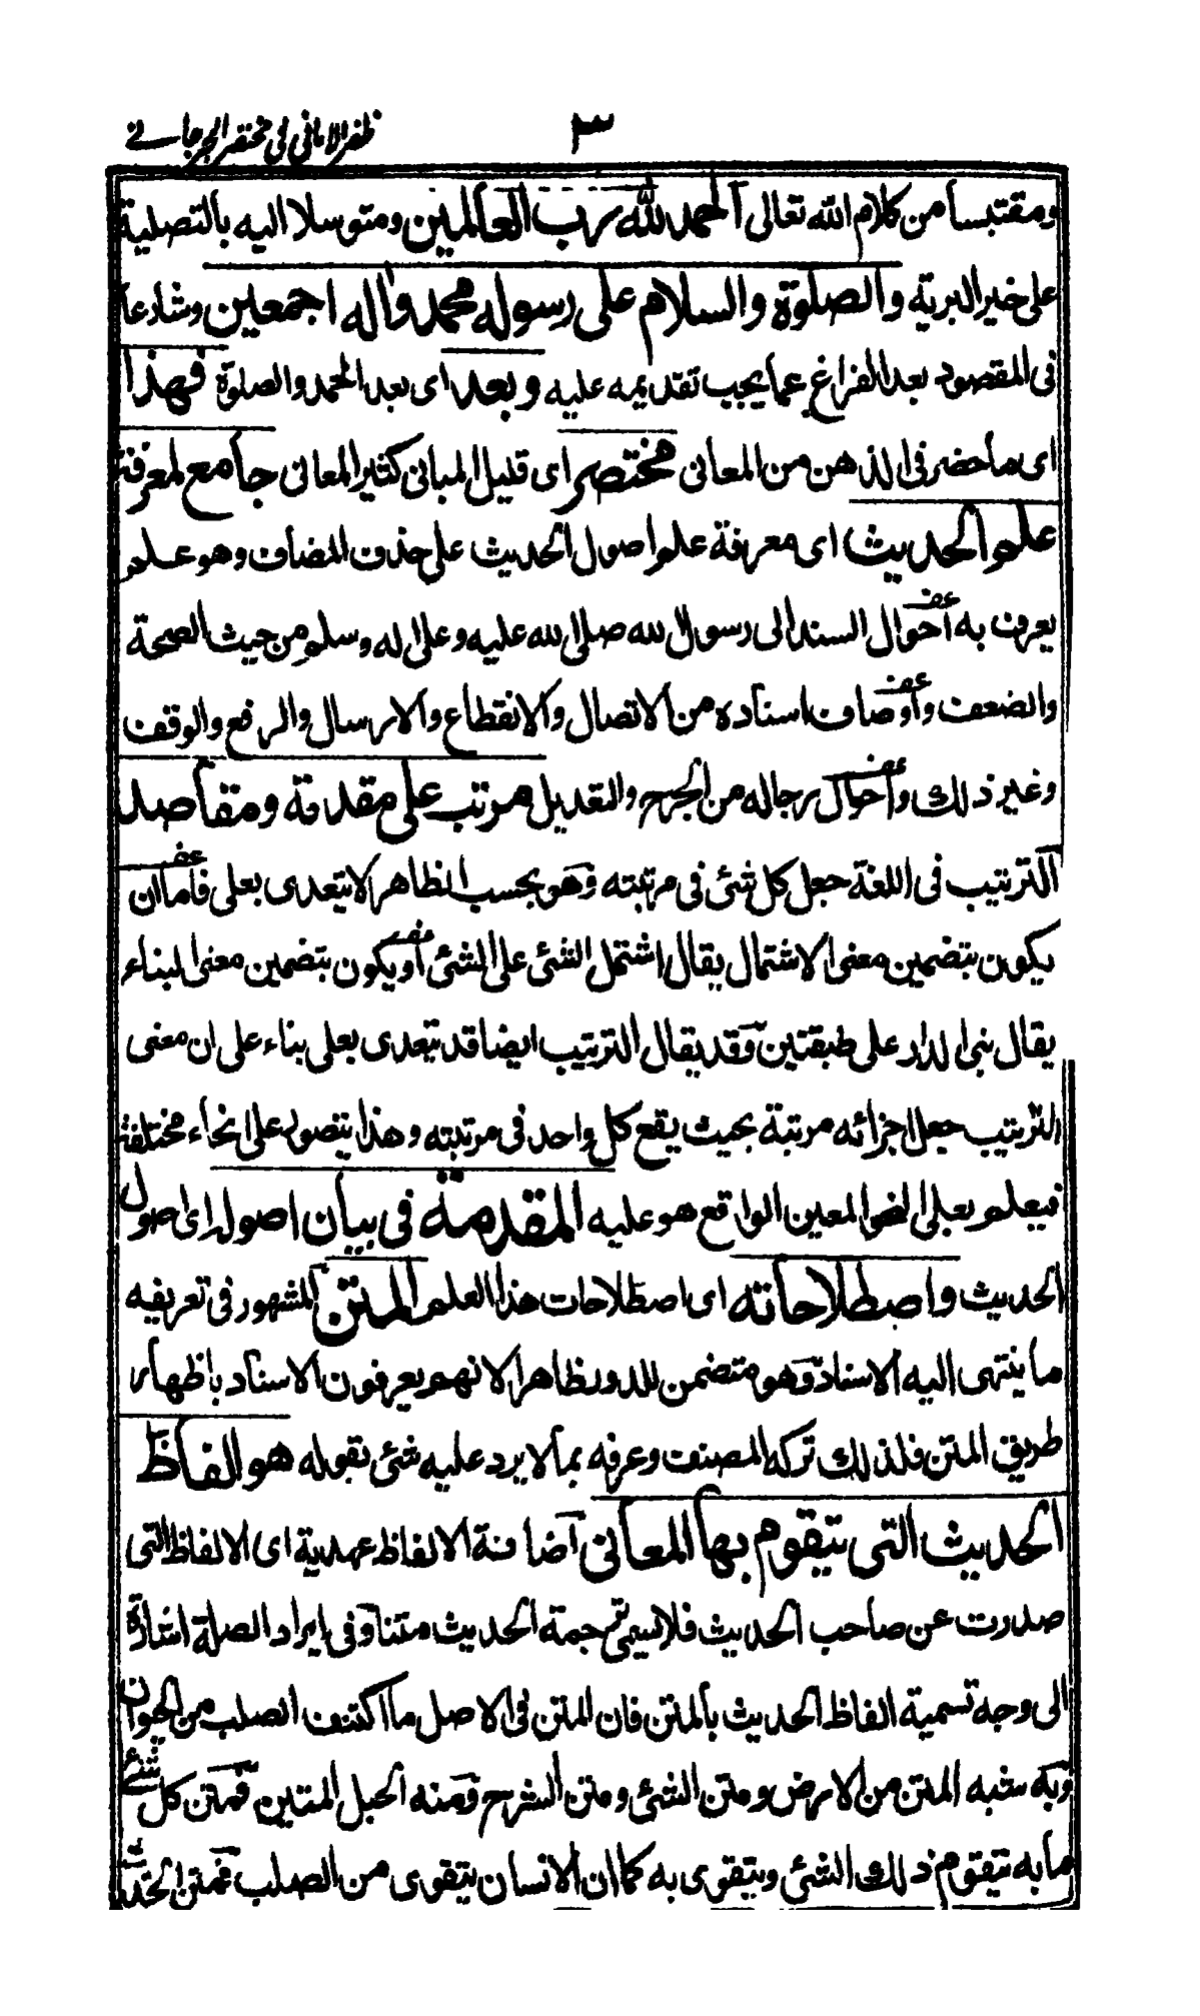 ٣ ظفر الاماني في مختصر الجرجاني
ومقتبسا من كلام الله تعالى الحمد لله رب العالمين ومتوسلا اليه بالتصلية
على خير البرية والصلوة والسلام على رسوله محمد واله اجمعين وشارعا
فى المقصود بعد الفراغ عما يجب تقديمه عليه وبعد اى بعد الحمد والصلوة فهذا
اى ما حضر فى الذهن من المعانى مختصر اى قليل المبانى كثير المعانى جامع لمعرفة
علم الحديث اى معرفة علم اصول الحديث على حذف المضاف وهو علم
يعرف به احوال السند الى رسول الله صلى الله عليه وعلى اله وسلم من حيث الصحة
والضعف واوصاف اسناده من الاتصال والانقطاع والارسال والرفع والوقف
وغير ذلك واحوال رجاله من الجرح والتعديل مرتب على مقدمة ومقاصد
الترتيب فى اللغة جعل كل شئ فى مرتبته وهو بحسب الظاهر لا يتعدى بعلى فاما ان
يكون بتضمين معنى الاشتمال يقال اشتمل الشئ على الشئ او يكون بتضمين معنى البناء
يقال بنى الدار على طبقتين وقد يقال الترتيب ايضا قد تعدى بعلى بناء على ان معنى
الترتيب جعل اجزائه مرتبة بحيث يقع كل واحد فى مرتبته وهذا يتصور على انحاء مختلفة
فيعلم بعلى النحو المعين الواقع هو عليه المقدمة فى بيان اصوله اى اصول
الحديث واصطلاحاته اى اصطلاحات هذا العلم المتن المشهور فى تعريفه
ما ينتهى اليه الاسناد وهو متضمن للدور ظاهرا لانهم يعرفون الاسناد باظهار
طريق المتن فلذلك تركه المصنف وعرفه بما لا يرد عليه شئ بقوله هو الفاظ
الحديث التى يتقوم بها المعانى اضافة الالفاظ عهدية اى الالفاظ التى
صدرت عن صاحب الحديث فلا يسمى ترجمة الحديث متنا وفى ايراد الصلة اشارة
الى وجه تسمية الفاظ الحديث بالمتن فان المتن فى الاصل ما اكتنف الصلب من الحيوان
وبه شبه المتن من الارض ومتن الشئ ومتن الشرح ومنه الحبل المتين فمتن كل شئ
ما به يتقوم ذلك الشئ ويتقوى به كما ان الانسان يتقوى من الصلب فمتن الحديث